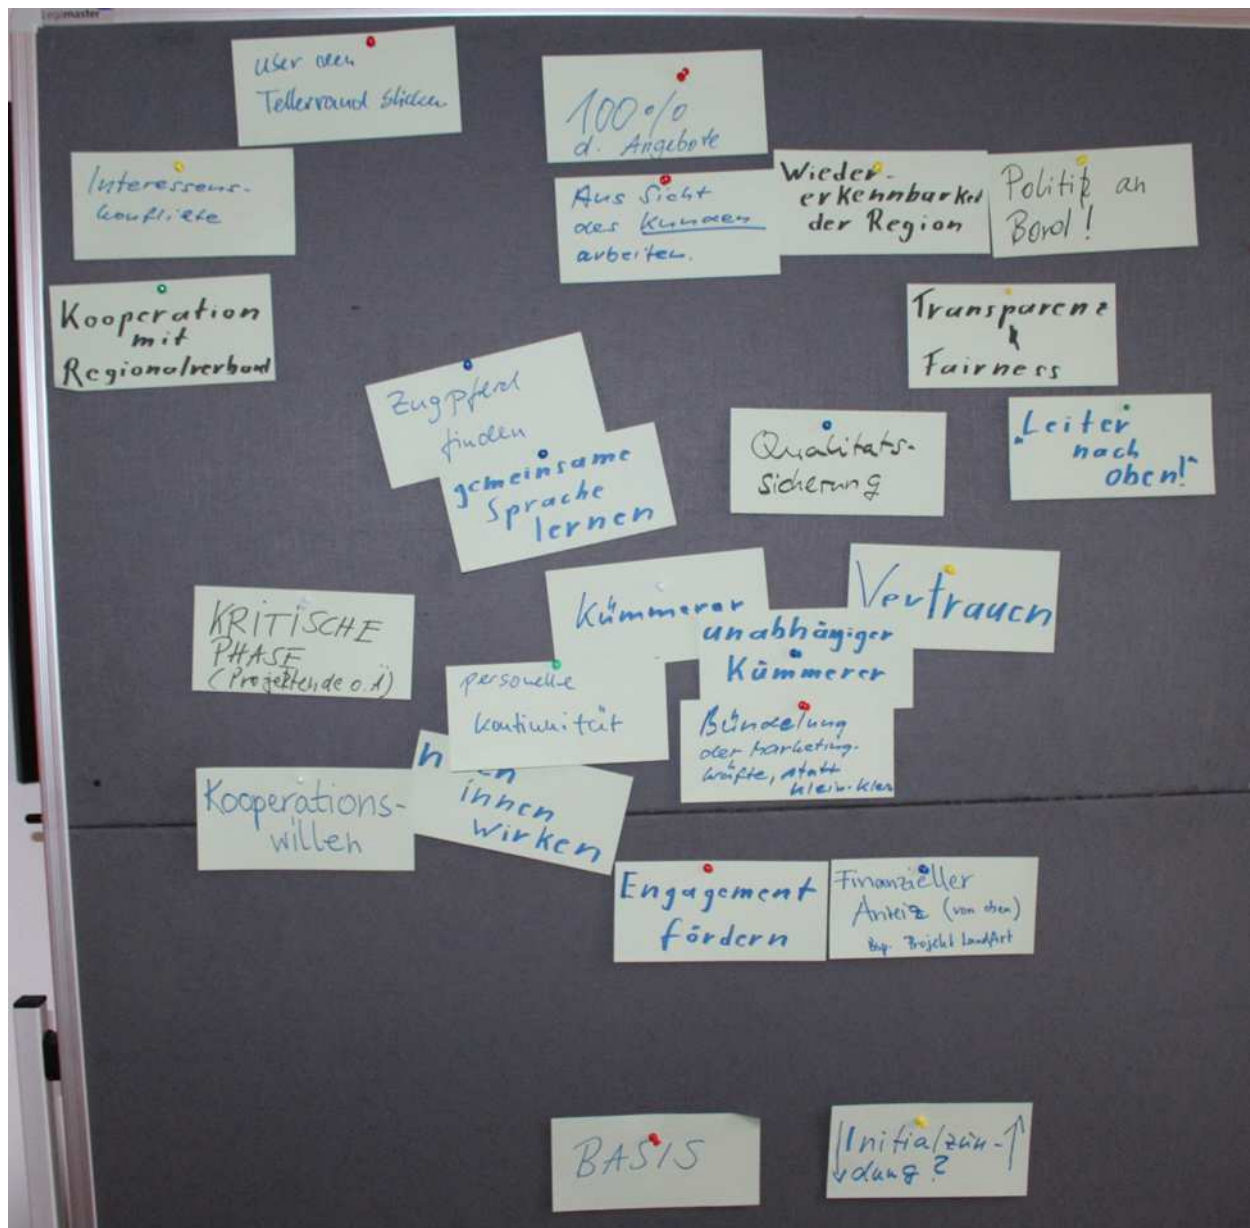 Legamaster
über den
Tellerrand blicken
100%
d. Angebote
Interessens-
konflikte
Aus Sicht
des Kunden
arbeiten.
Wieder-
erkennbarkeit
der Region
Politik an
Bord!
Kooperation
mit
Regionalverband
Transparenz
&
Fairness
Zugpferd
finden
gemeinsame
Sprache
lernen
Qualitäts-
sicherung
"Leiter
nach
oben!"
KRITISCHE
PHASE
(Projektende o.Ä)
Kümmerer
unabhängiger
Kümmerer
Vertrauen
personelle
Kontinuität
Bündelung
der Marketing-
kräfte, statt
klein-klein
Kooperations-
willen
innen
wirken
Engagement
fördern
Finanzieller
Anreiz (von oben)
Bsp. Projekt LandArt
BASIS
↓Initialzün-↑
dung?